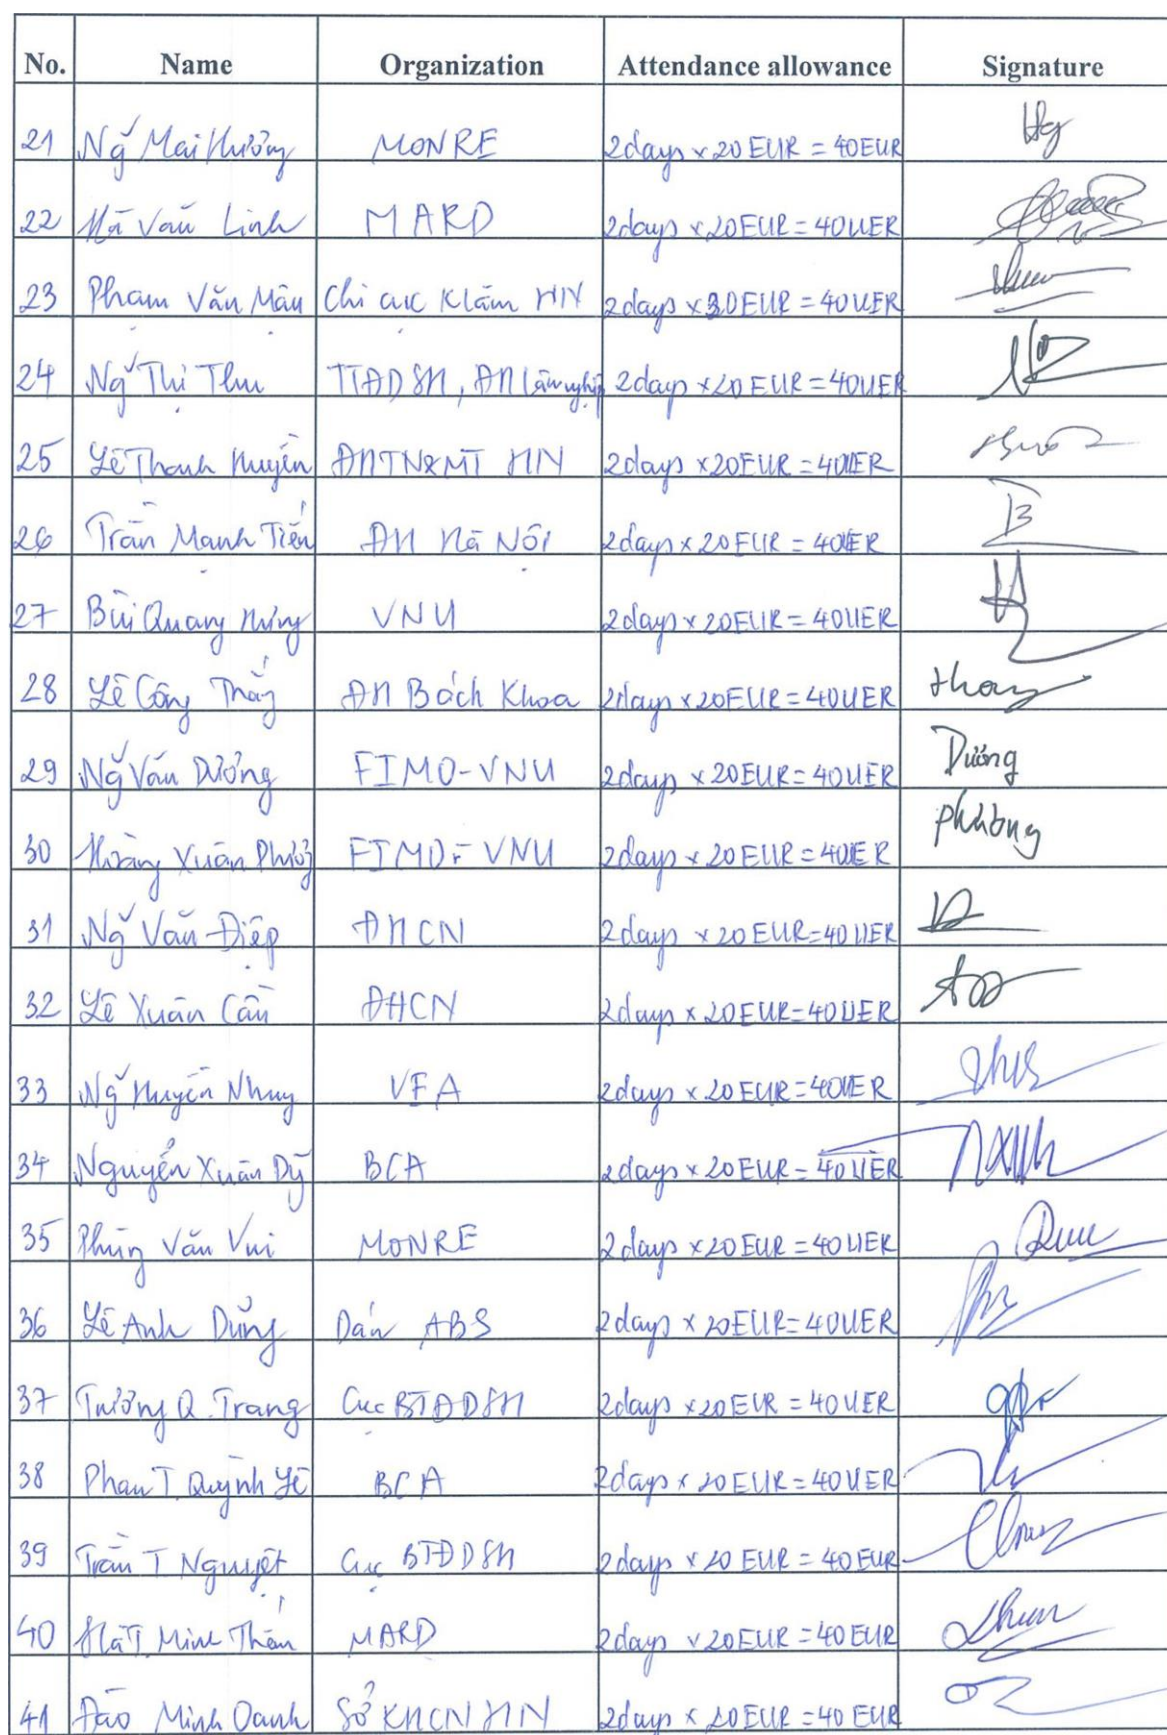 No. Name Organization Attendance allowance Signature
21 Ng̃ Mai Hương MONRE 2days x 20 EUR = 40EUR Hg
22 Hà Văn Linh MARD 2days x 20EUR = 40UER
23 Phạm Văn Mâu Chi cục Klâm HN 2days x 20EUR = 40UER
24 Ng̃ Thị Thu TTĐDSH, ĐH Lâm nghiệp 2days x 20 EUR = 40UER
25 Lê Thanh Huyền ĐHTN&MT HN 2days x 20EUR = 40UER
26 Trần Mạnh Tiến ĐH Hà Nội 2days x 20EUR = 40UER
27 Bùi Quang Hưng VNU 2days x 20EUR = 40UER
28 Lê Công Thắng ĐH Bách Khoa 2days x 20EUR = 40UER thang
29 Ng̃ Văn Dưởng FIMO-VNU 2days x 20EUR = 40UER Dưởng
30 Hoàng Xuân Phương FIMO - VNU 2days x 20EUR = 40UER phương
31 Ng̃ Văn Điệp ĐHCN 2days x 20 EUR = 40 UER
32 Lê Xuân Cần ĐHCN 2days x 20EUR = 40UER
33 Ng̃ Huyền Nhung VEA 2days x 20 EUR = 40UER
34 Nguyễn Xuân Dỹ BCA 2days x 20EUR = 40UER
35 Phùng Văn Vui MONRE 2days x 20EUR = 40UER
36 Lê Anh Dũng Dán ABS 2days x 20EUR = 40UER
37 Trương Q. Trang Cục BTĐDSH 2days x 20 EUR = 40UER
38 Phan T. Quỳnh Lê BCA 2days x 20 EUR = 40UER
39 Trần T Nguyệt Cục BTĐDSH 2days x 20 EUR = 40 EUR
40 Hà T. Minh MARD 2days x 20EUR = 40EUR
41 Đào Minh Oanh Sở KHCN HN 2days x 20EUR = 40 EUR